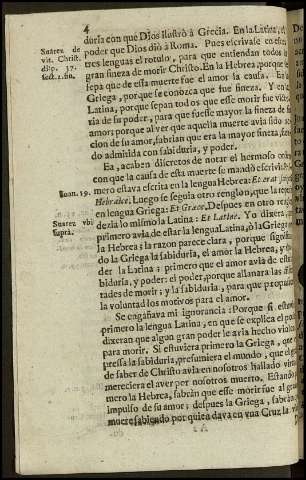 4
duria con que Dios ilustrò à Grecia. En la Latina, el
poder que Dios diò à Roma. Pues escrivase en estas
tres lenguas el rotulo, para que entiendan todos la
gran fineza de morir Christo. En la Hebrea, porque se
sepa que de esta muerte fue el amor la causa. En la
Griega, porque se conozca que fue fineza. Y en la
Latina, porque sepan todos que esse morir fue victo-
ria de su poder, para que fuesse mayor la fineza de su
amor; porque al ver que aquella muerte avia sido ac-
cion de su amor, sabrian que era la mayor fineza, sien-
do admitida con sabiduria, y poder.
Suarez de
vit. Christ.
disp. 37.
sect. 1. fin.
Ea, acaben discretos de notar el hermoso orden
con que la causa de esta muerte se mandò escrivir. Pri-
mero estava escrita en la lengua Hebrea: Et erat scriptum
Hebraicè. Luego se seguia otro renglon, que la repetia
en lengua Griega: Et Græce. Despues en otro renglon
dezia lo mismo la Latina: Et Latinè. Yo dixera, que
primero avia de estar la lengua Latina, ò la Griega que
la Hebrea; y la razon parece clara, porque significan-
do la Griega la sabiduria, el amor la Hebrea, y el po-
der la Latina: primero que el amor avia de estar la sa-
biduria, y poder: el poder, porque allanara las dificul-
tades de morir; y la sabiduria, para que propusiesse à
la voluntad los motivos para el amor.
Ioan. 19.
Suarez vbi
supr.
Se engañava mi ignorancia: Porque si estuviera
primero la lengua Latina, en que se explica el poder,
dixeran que algun gran poder le avia hecho violencia
para morir. Si estuviera primero la Griega, que ex-
pressa la sabiduria, presumiera el mundo, que el gran-
de saber de Christo avia en nosotros hallado virtud que
mereciera el aver por nosotros muerto. Estando pri-
mero la Hebrea, sabràn que esse morir fue al gran
impulso de su amor; despues la Griega, sabràn que
muere sabiendo por quien dava en vna Cruz la vi-